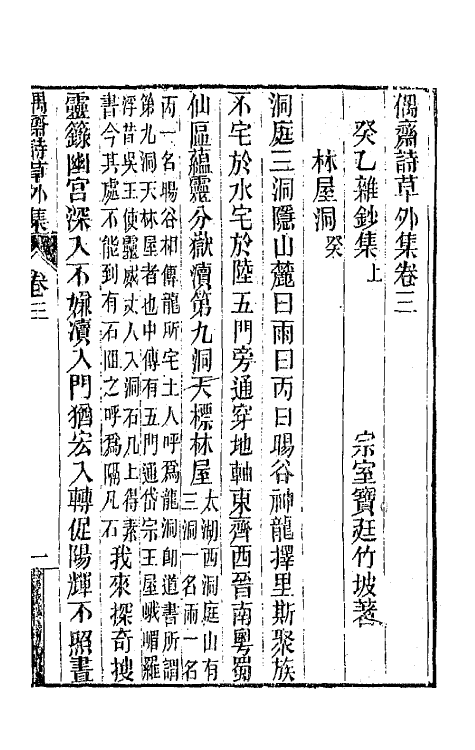 偶齋詩草外集卷三
癸乙雜鈔集上
宗室寶廷竹坡著
林屋洞癸
洞庭三洞隱山麓曰雨曰丙曰暘谷神龍擇里斯聚族
不宅於水宅於陸五門旁通穿地軸東齊西晉南粵蜀
仙區蘊靈分嶽瀆第九洞天標林屋
太湖西洞庭山有
三洞一名雨一名
丙一名暘谷相傳龍所宅土人呼爲龍洞卽道書所謂
第九洞天林屋者也中傳有五門通岱宗王屋峨嵋羅
浮昔吳王使靈威丈人入洞石几上得素
書今其處不能到有石阻之呼爲隔凡石
我來探奇搜
靈籙幽宮深入不嫌瀆入門猶宏入轉促陽輝不照晝
偶齋詩草外集
卷三
一